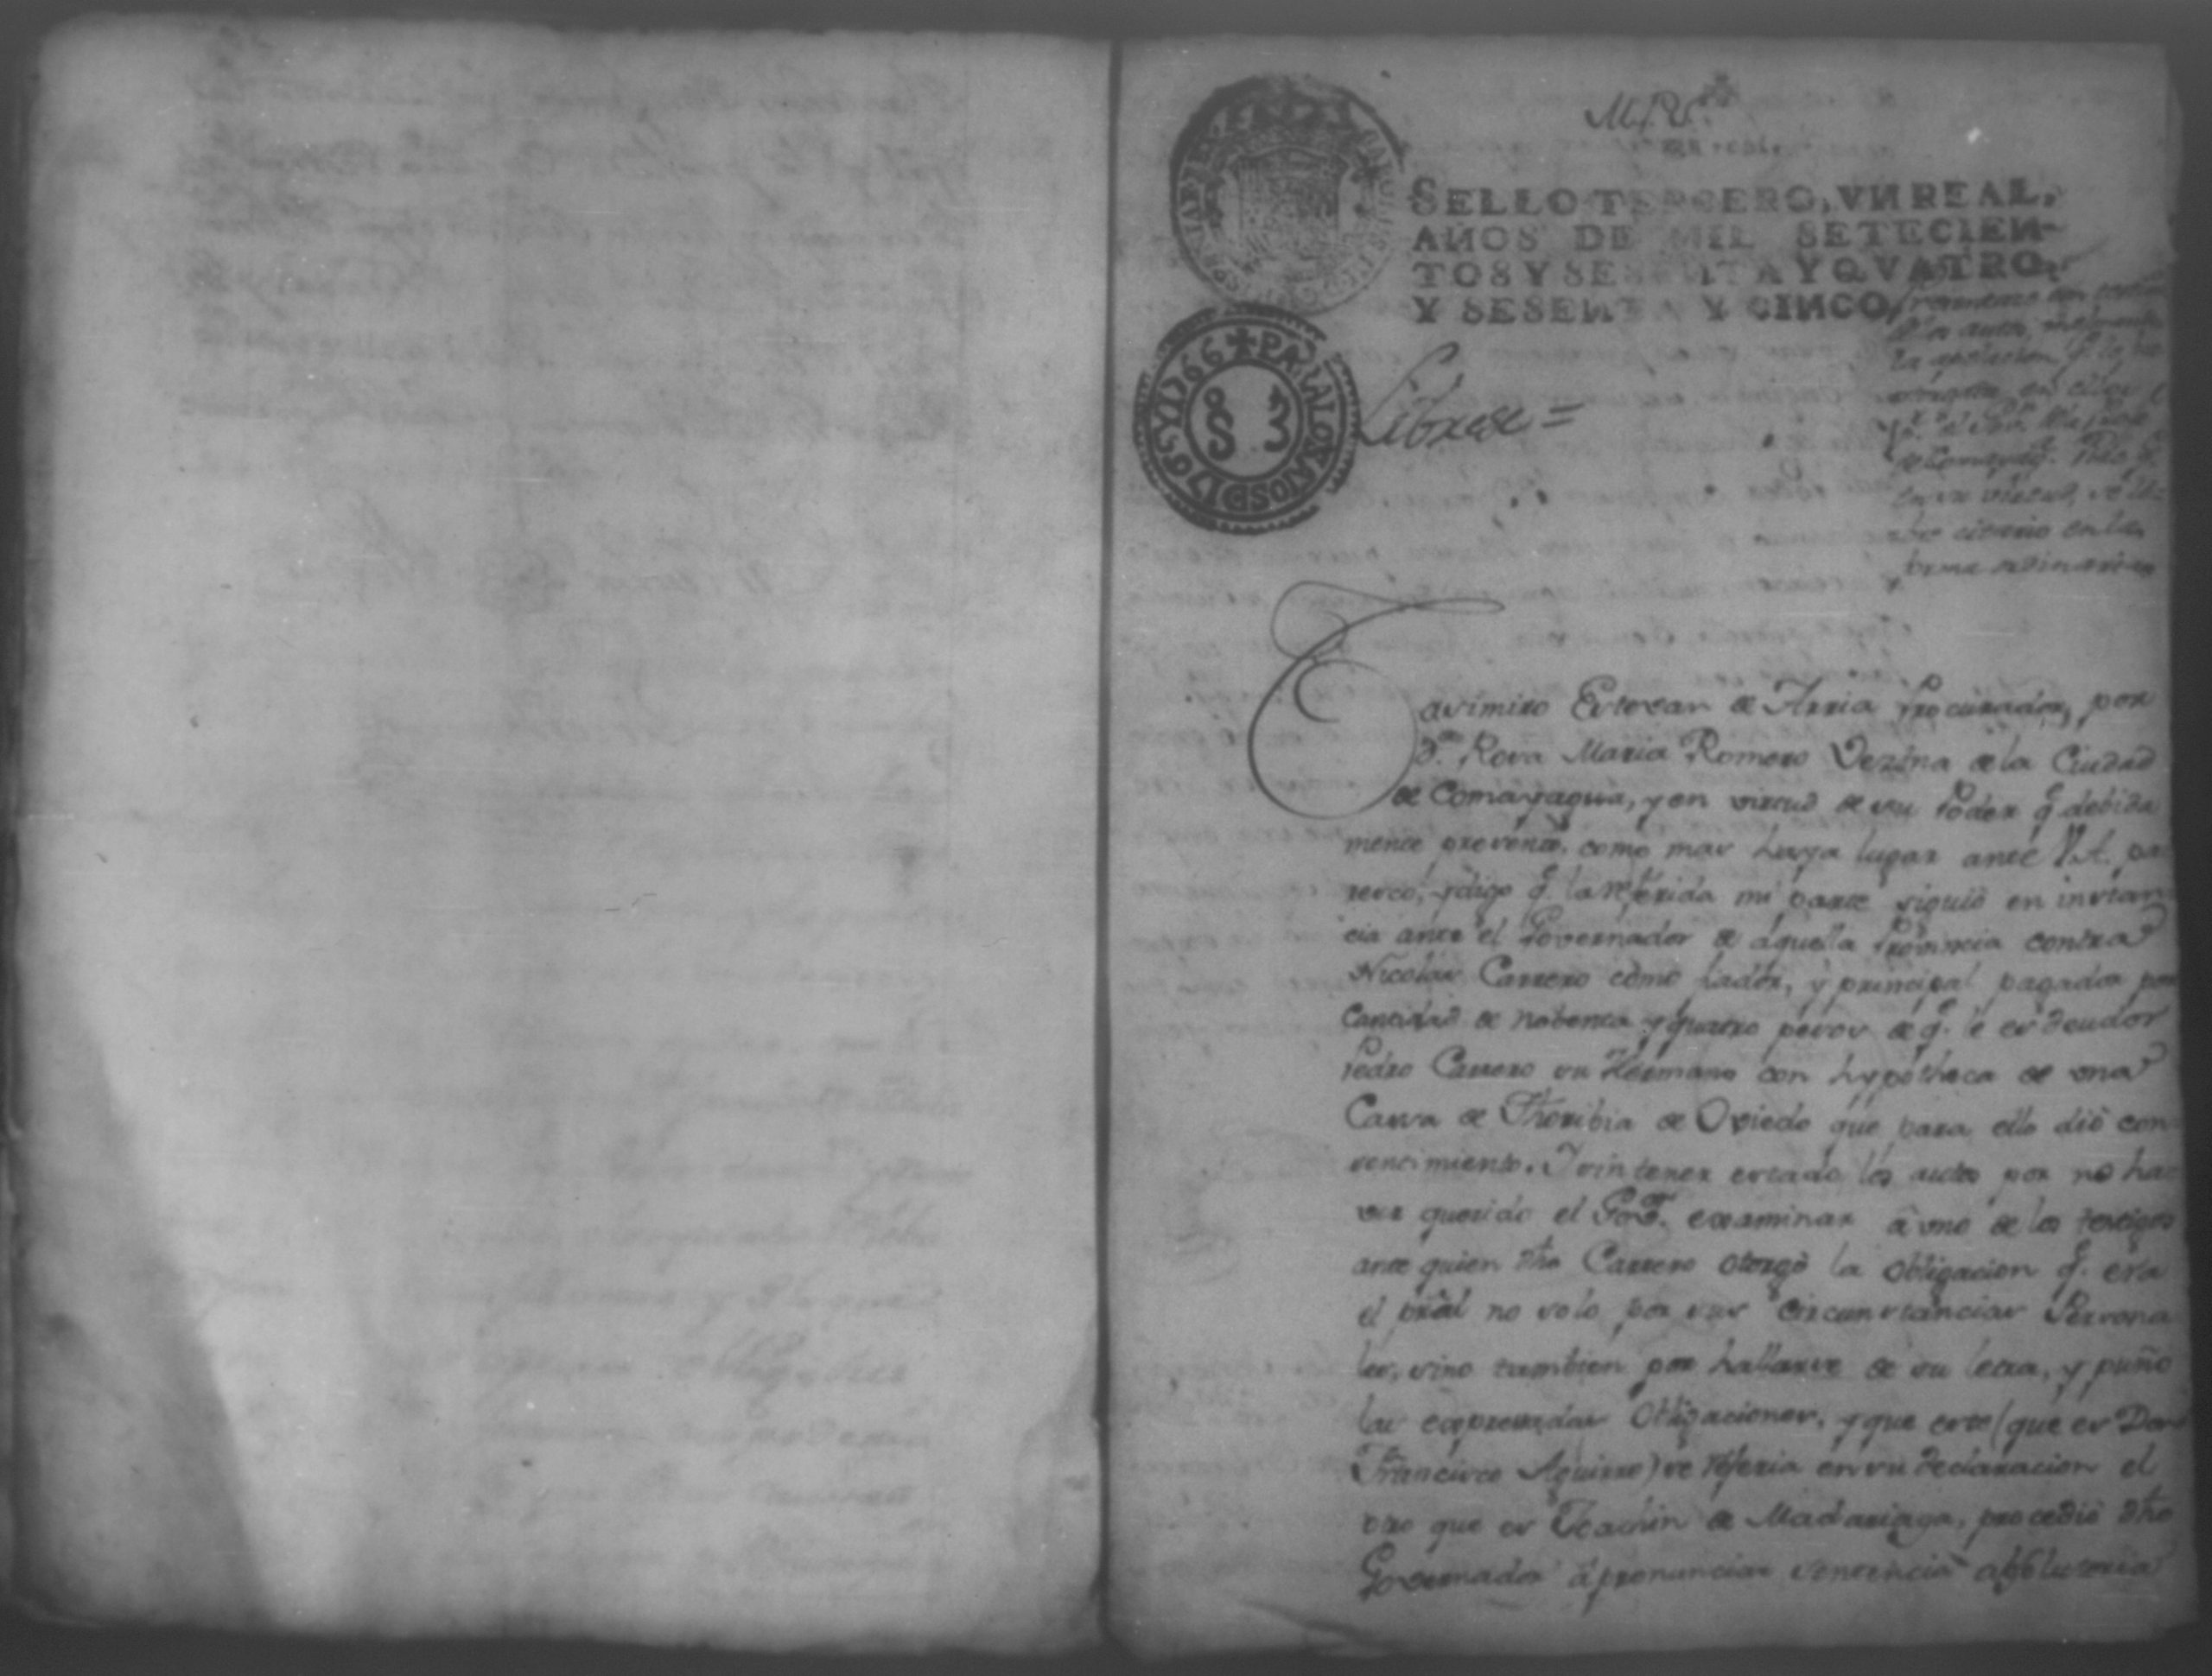 M. P. S.
SELLO TERCERO, VN REAL,
AÑOS DE MIL SETECIEN-
TOS Y SESENTA Y QVATRO,
Y SESENTA Y CINCO,
PARA LOS AÑOS D 1765 Y 1766
S S 3
Librese =
la apelacion q.
en virtud, se
en la
forma ordinaria
Casimiro Estevan de Arria Procurador, por
D.ª Rosa Maria Romero Vezina de la Ciudad
de Comayagua, y en virtud de su Poder q.e debida
mente presento, como mas haya lugar ante V.A. pa
resco, y digo q.e la referida mi parte siguió en instan
cia ante el Governador de aquella Provincia contra
Nicolas Carrero como fiador, y principal pagador por
Cantidad de nobenta y quatro pesos de q.e le es deudor
Pedro Carrero su Hermano con hypotheca de una
Cassa de Thoribia de Oviedo que para ello dió con
sentimiento. Y sin tener estado los autos por no ha
ver querido el Gov.or examinar â uno de los testigos
ante quien dho Carrero otorgò la obligacion q.e era
el pral no solo por sus circunstancias Persona
les, sino tambien por hallarse de su letra, y puño
las expressadas Obligaciones, y que este (que es Don
Francisco Aguirre) se referia en su declaracion el
otro que es Joachin de Madariaga, procedió dho
Governador â pronunciar sentencia absolutoria